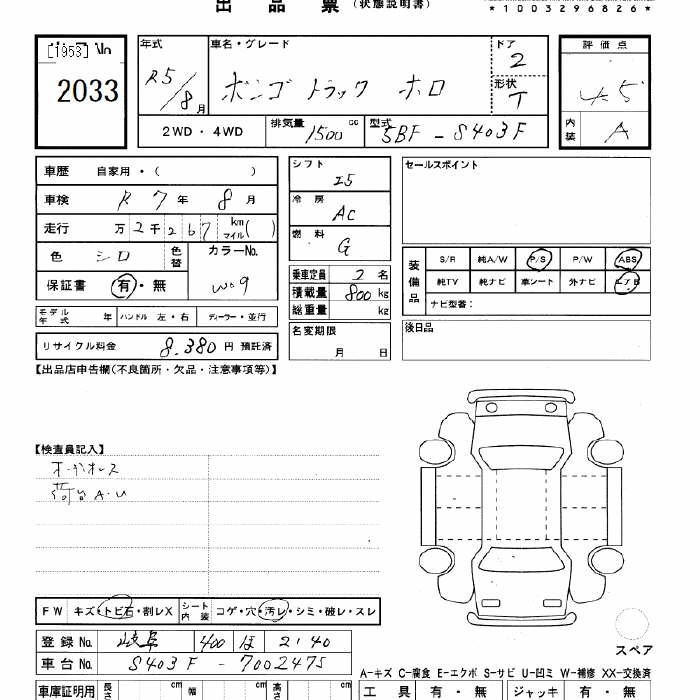 出品票(状態説明書)
*1003296826*
[1953] No
2033
年式
R5/8月
車名・グレード
ボンゴトラック ホロ
ドア
2
形状
T
評価点
内装
A
2WD・4WD
排気量
1500 cc
型式
5BF-S403F
車歴 自家用・( )
車検 R7年8月
走行 万2千267 km マイル( )
色 シロ 色替
カラーNo.
W09
保証書 有・無
モデル年式 年 ハンドル 左・右 ディーラー・並行
リサイクル料金 8,380円 預託済
シフト
I5
冷房
AC
燃料
G
乗車定員 2名
積載量 800kg
総重量 kg
名変期限
月 日
セールスポイント
装備品
S/R 純A/W P/S P/W ABS
純TV 純ナビ 革シート 外ナビ エアB
ナビ型番:
後日品
【出品店申告欄(不良箇所・欠品・注意事項等)】
【検査員記入】
荷台A・U
FW キズ・トビ石・割レX シート内装 コゲ・穴・汚レ・シミ・破レ・スレ
登録No. 岐阜 400 ほ 2140
車台No. S403F-7002475
スペア
A-キズ C-腐食 E-エクボ S-サビ U-凹ミ W-補修 XX-交換済
車庫証明用 長さ cm 幅 cm 高さ cm
工具 有・無 ジャッキ 有・無